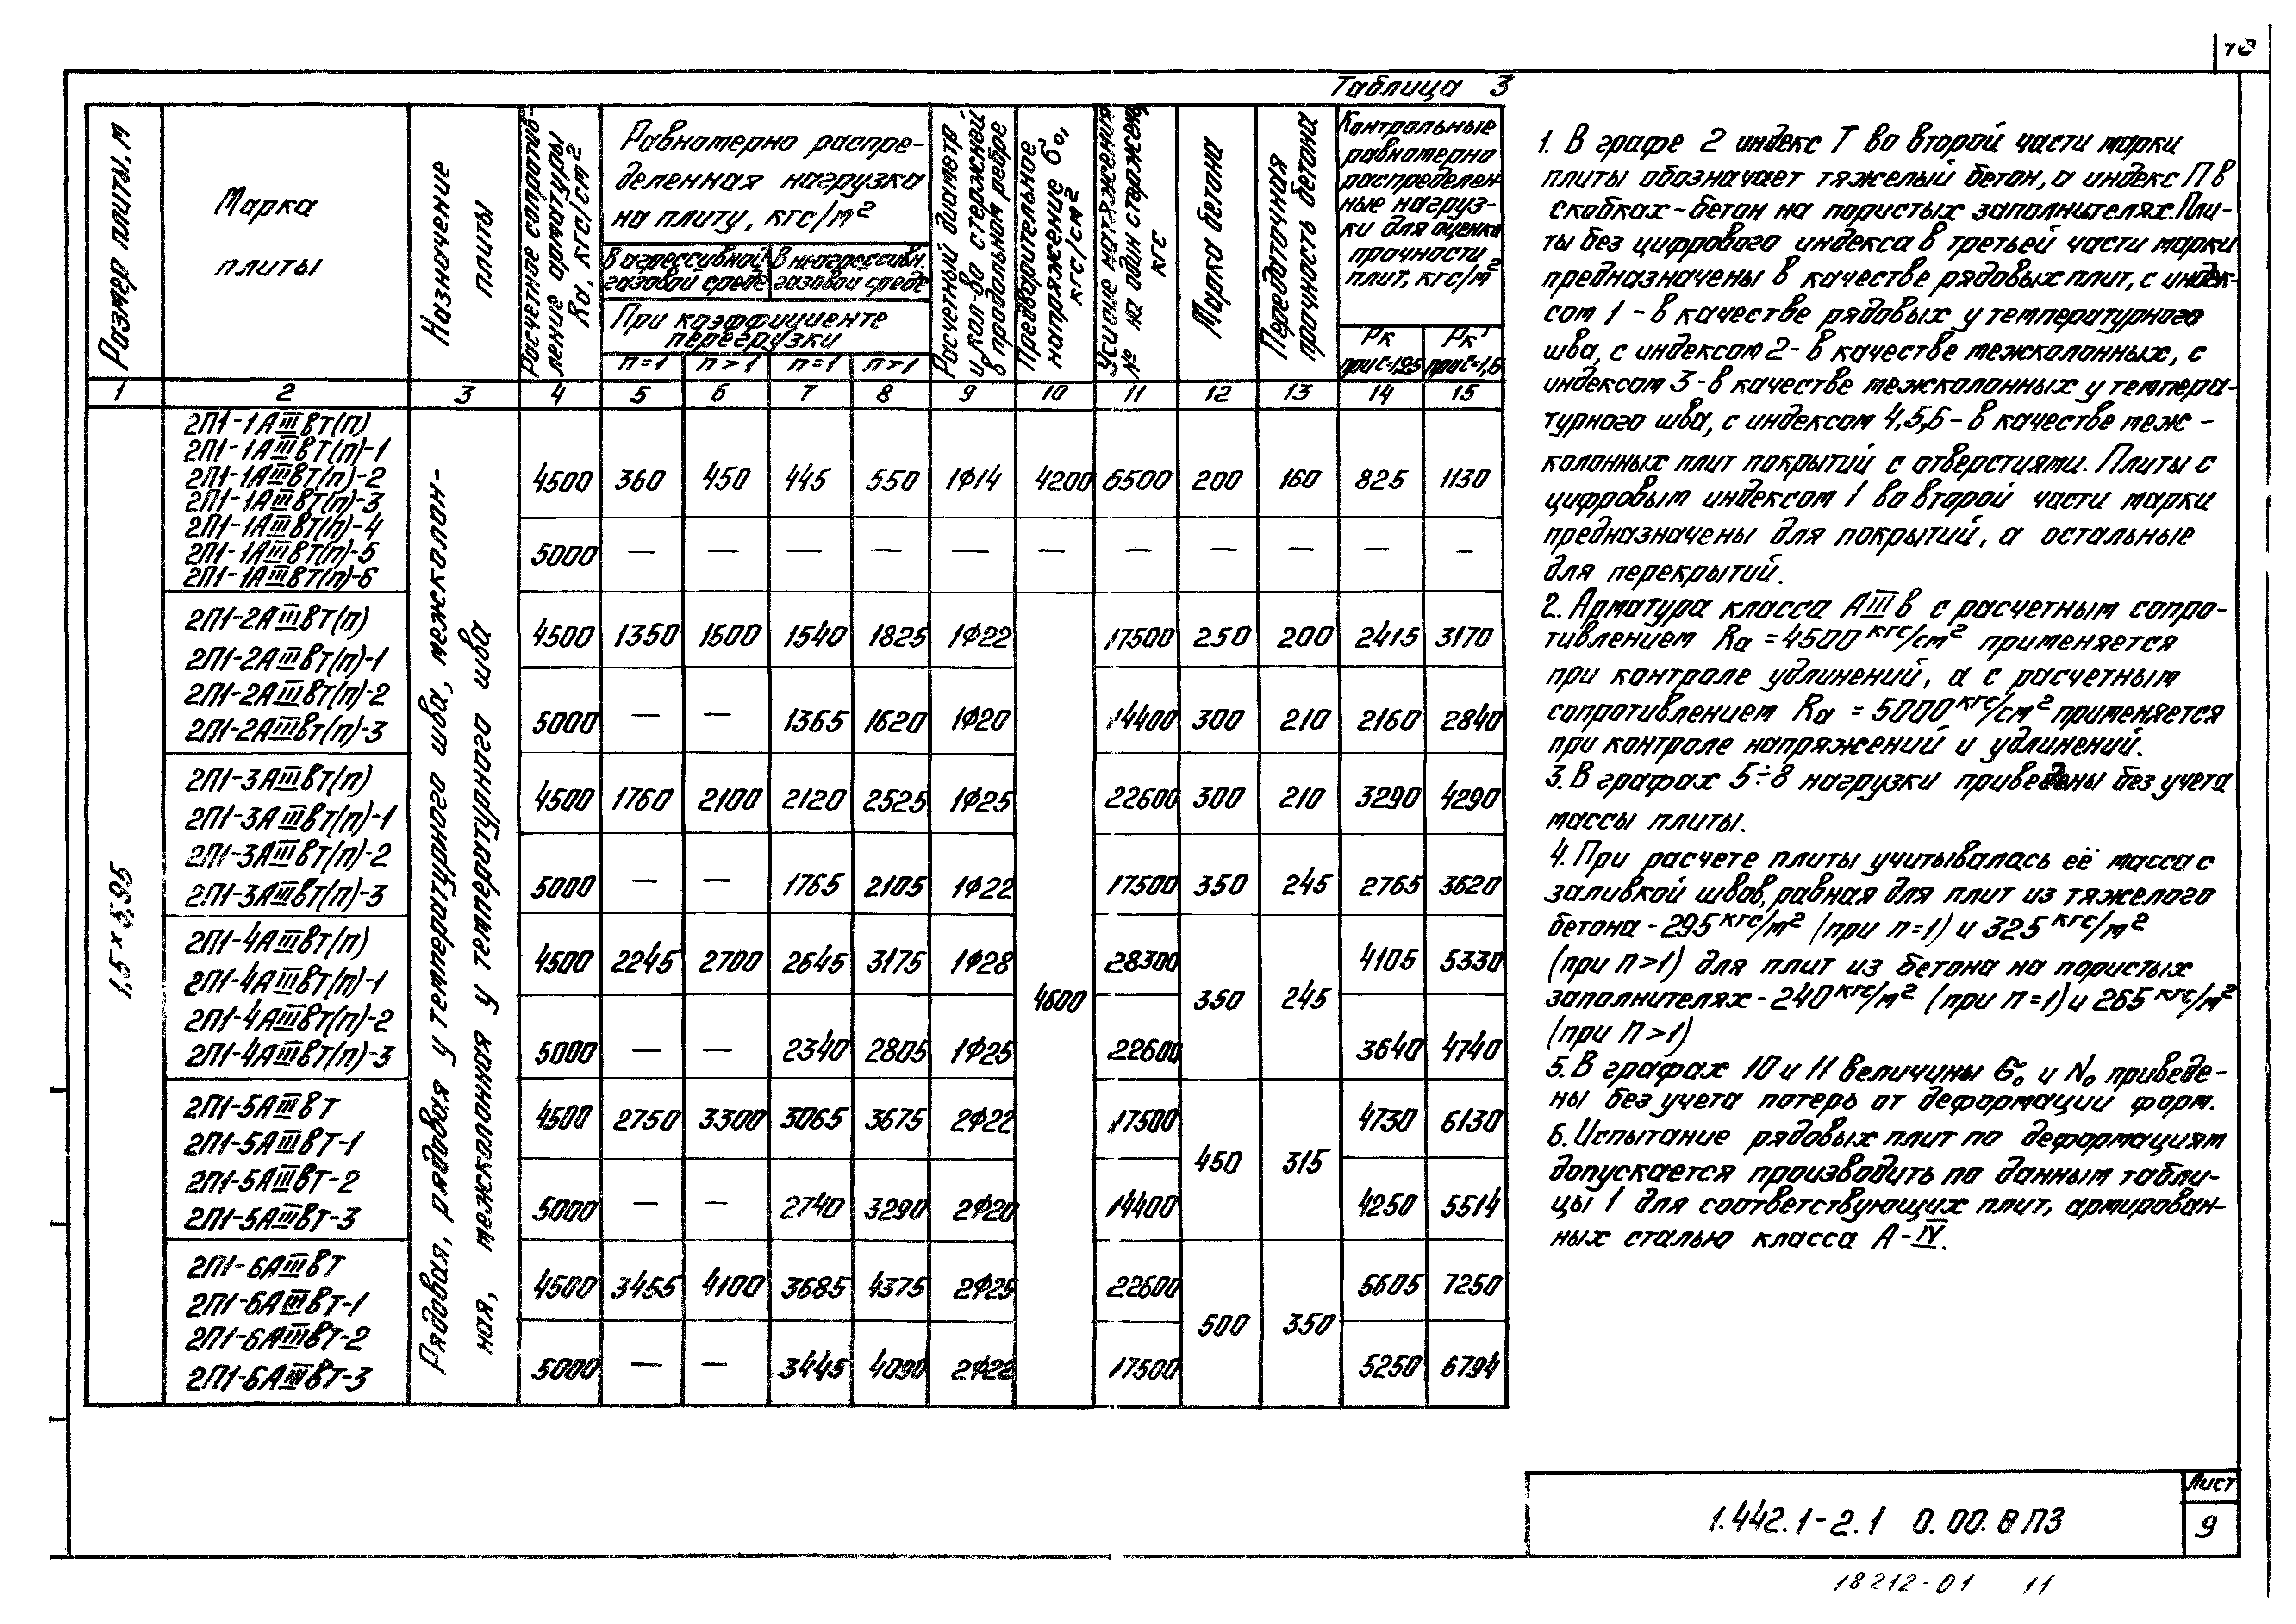 10
Таблица 3
Размер плиты, м
Марка плиты
Назначение плиты
Расчетное сопротив-
ление арматуры
Rа, кгс/см²
Равномерно распре-
деленная нагрузка
на плиту, кгс/м²
В агрессивной
газовой среде
В неагрессивн.
газовой среде
При коэффициенте
перегрузки
n=1 n>1 n=1 n>1
Расчетный диаметр
и кол-во стержней
в продольном ребре
Предварительное
напряжение σ₀,
кгс/см²
Усилие натяжения
N₀ на один стержень,
кгс
Марка бетона
Передаточная
прочность бетона
Контрольные
равномерно
распределен-
ные нагруз-
ки для оценки
прочности
плит, кгс/м²
Рк
при С=1,25
Рк'
при С=1,6
1 2 3 4 5 6 7 8 9 10 11 12 13 14 15
1,5 × 5,95
Рядовая, рядовая у температурного шва, межколон-
ная, межколонная у температурного шва
2П1-1АIIIвТ(п)
2П1-1АIIIвТ(п)-1
2П1-1АIIIвТ(п)-2
2П1-1АIIIвТ(п)-3
2П1-1АIIIвТ(п)-4
2П1-1АIIIвТ(п)-5
2П1-1АIIIвТ(п)-6
4500 360 450 445 550 1Ф14 4200 6500 200 160 825 1130
5000 — — — — — — — — — — —
2П1-2АIIIвТ(п)
2П1-2АIIIвТ(п)-1
2П1-2АIIIвТ(п)-2
2П1-2АIIIвТ(п)-3
4500 1350 1600 1540 1825 1Ф22 17500 250 200 2415 3170
5000 — — 1365 1620 1Ф20 14400 300 210 2160 2840
2П1-3АIIIвТ(п)
2П1-3АIIIвТ(п)-1
2П1-3АIIIвТ(п)-2
2П1-3АIIIвТ(п)-3
4500 1760 2100 2120 2525 1Ф25 22600 300 210 3290 4290
5000 — — 1765 2105 1Ф22 17500 350 245 2765 3620
2П1-4АIIIвТ(п)
2П1-4АIIIвТ(п)-1
2П1-4АIIIвТ(п)-2
2П1-4АIIIвТ(п)-3
4500 2245 2700 2645 3175 1Ф28 28300 4105 5330
4600 350 245
5000 — — 2340 2805 1Ф25 22600 3640 4740
2П1-5АIIIвТ
2П1-5АIIIвТ-1
2П1-5АIIIвТ-2
2П1-5АIIIвТ-3
4500 2750 3300 3065 3675 2Ф22 17500 4730 6130
450 315
5000 — — 2740 3290 2Ф20 14400 4250 5514
2П1-6АIIIвТ
2П1-6АIIIвТ-1
2П1-6АIIIвТ-2
2П1-6АIIIвТ-3
4500 3455 4100 3685 4375 2Ф25 22600 5605 7250
500 350
5000 — — 3445 4090 2Ф22 17500 5250 6794
1. В графе 2 индекс Т во второй части марки
плиты обозначает тяжелый бетон, а индекс П в
скобках - бетон на пористых заполнителях. Пли-
ты без цифрового индекса в третьей части марки
предназначены в качестве рядовых плит, с индек-
сом 1 - в качестве рядовых у температурного
шва, с индексом 2 - в качестве межколонных, с
индексом 3 - в качестве межколонных у темпера-
турного шва, с индексом 4,5,6 - в качестве меж-
колонных плит покрытий с отверстиями. Плиты с
цифровым индексом 1 во второй части марки
предназначены для покрытий, а остальные
для перекрытий.
2. Арматура класса АIIIв с расчетным сопро-
тивлением Rа = 4500 кгс/см² применяется
при контроле удлинений, а с расчетным
сопротивлением Rа = 5000 кгс/см² применяется
при контроле напряжений и удлинений.
3. В графах 5÷8 нагрузки приведены без учета
массы плиты.
4. При расчете плиты учитывалась её масса с
заливкой швов, равная для плит из тяжелого
бетона - 295 кгс/м² (при n=1) и 325 кгс/м²
(при n>1) для плит из бетона на пористых
заполнителях - 240 кгс/м² (при n=1) и 265 кгс/м²
(при n>1)
5. В графах 10 и 11 величины σ₀ и N₀ приведе-
ны без учета потерь от деформации форм.
6. Испытание рядовых плит по деформациям
допускается производить по данным табли-
цы 1 для соответствующих плит, армирован-
ных сталью класса А-IV.
1.442.1-2.1 0.00.0 ПЗ
Лист
9
18212-01 11